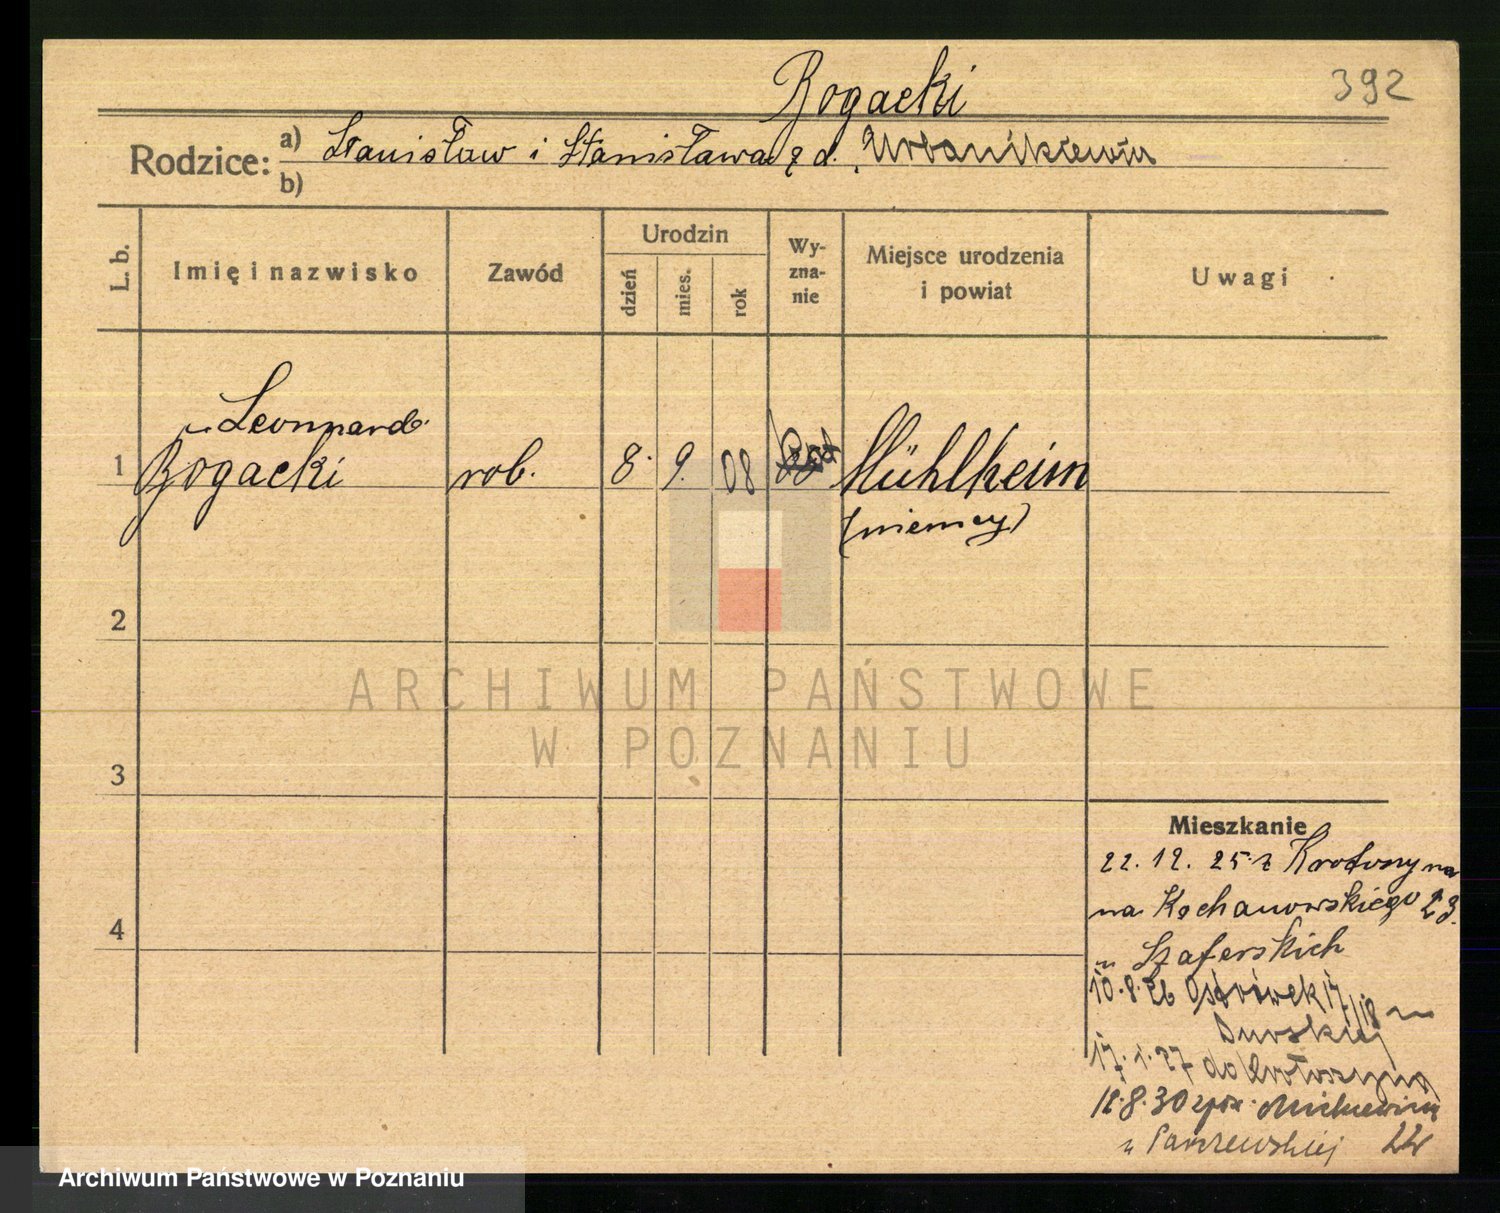 Bogacki
392
Rodzice: a) Stanisław i Stanisława z d. Urbanikiewicz
b)
L. b.
Imię i nazwisko
Zawód
Urodzin
dzień
mies.
rok
Wy-
zna-
nie
Miejsce urodzenia
i powiat
Uwagi
Leonnard
1 Bogacki rob. 8. 9. 08 Mühlheim
(niemcy)
2
3
4
Mieszkanie
22. 12. 25. z Krotoszyna
na Kochanowskiego 23.
u Szaferskich
10.8.26 Ostrówek 17/18 u
Durskiej
17.1.27 do Krotoszyna
12.8.30 Mickiewicza
u 22
ARCHIWUM PAŃSTWOWE
W POZNANIU
Archiwum Państwowe w Poznaniu